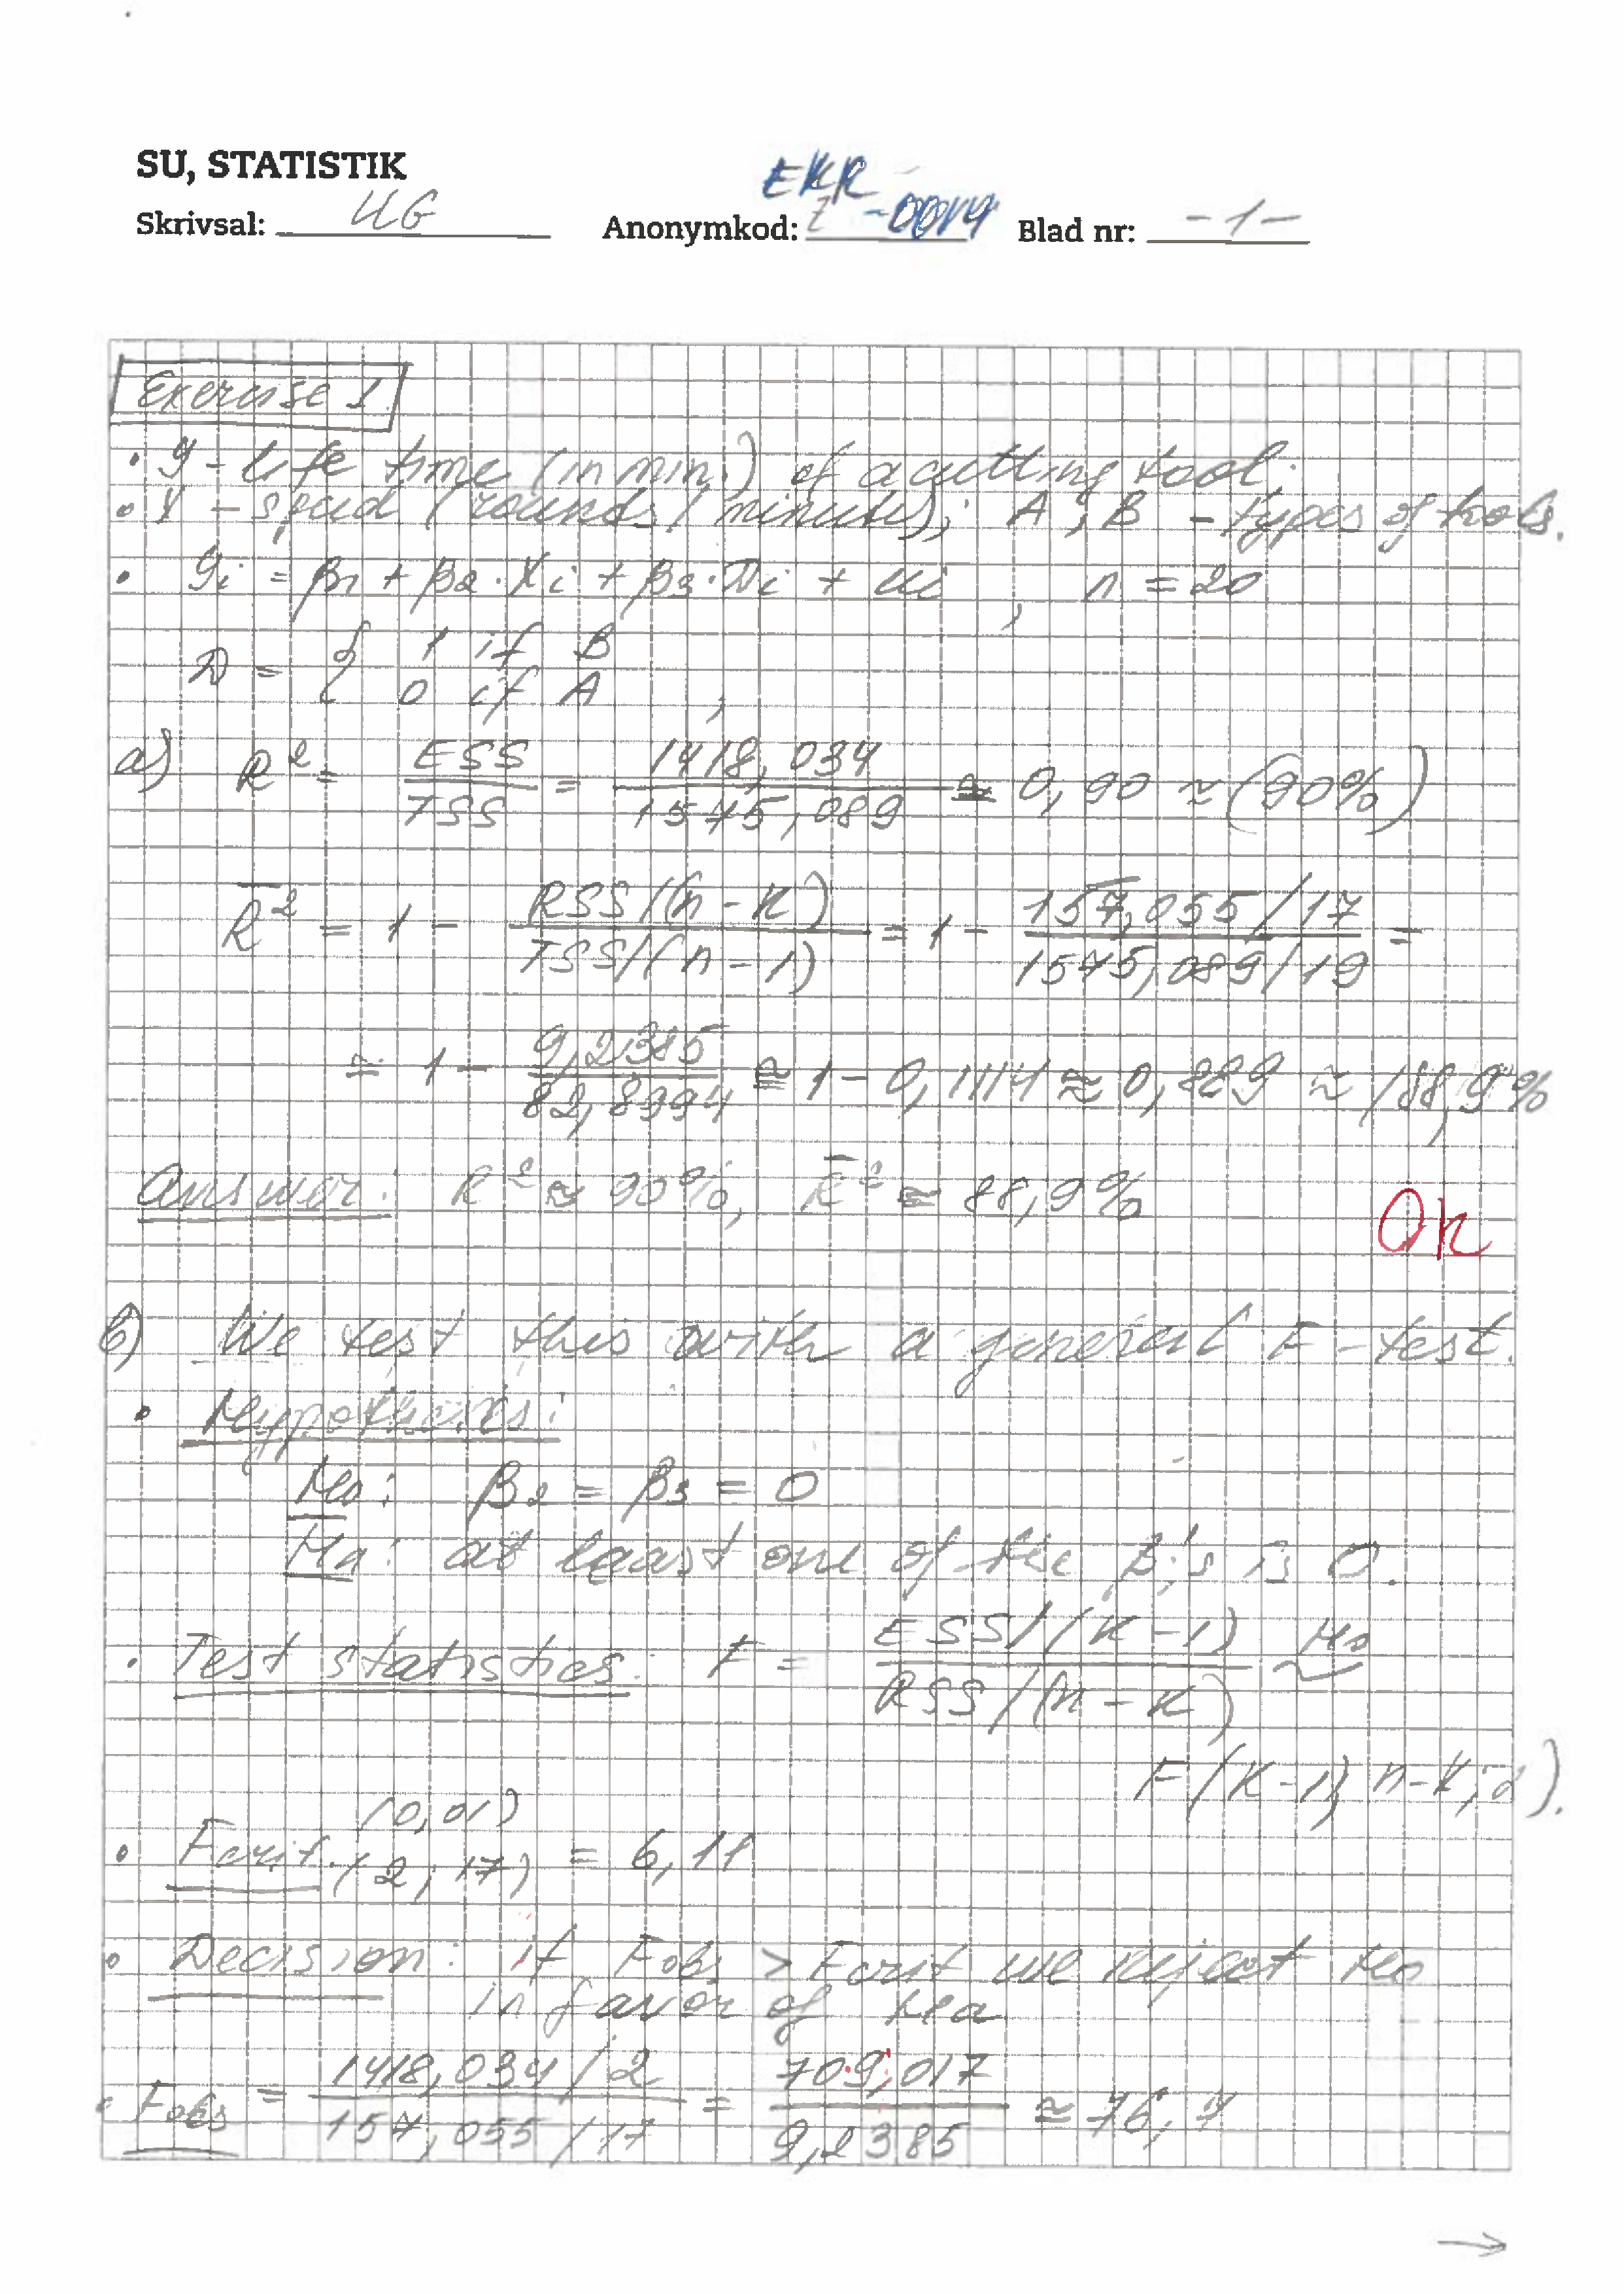 SU, STATISTIK
EKR
Skrivsal: UG Anonymkod: Z -0014 Blad nr: -1-
Exercise 1.
• y - life time (in min.) of a cutting tool;
• X - speed (rounds / minutes); A ; B - types of tools.
• yi = β1 + β2 · Xi + β3 · Di + ui , n = 20
D = { 1 if B
0 if A ;
a) R² = ESS / TSS = 1418,034 / 1575,089 ≅ 0,90 ≈ (90%)
R̄² = 1 - RSS/(n-k) / TSS/(n-1) = 1 - 157,055/17 / 1575,089/19 =
≅ 1 - 9,2385 / 82,8994 ≅ 1 - 0,1114 ≈ 0,889 ≈ 88,9%
Answer: R² ≈ 90%, R̄² ≈ 88,9%
OK
b) We test this with a general F-test.
• Hypothesis:
H0: β2 = β3 = 0
Ha: at least one of the βi's is 0.
• Test statistics: F = ESS/(K-1) / RSS/(n-K) ~ H0
F(K-1, n-K, α).
• Fcrit (0,01) (2; 17) = 6,11
• Decision: if Fobs > Fcrit we reject H0
in favor of Ha
• Fobs = 1418,034/2 / 157,055/17 = 709,017 / 9,2385 ≅ 76,7
→